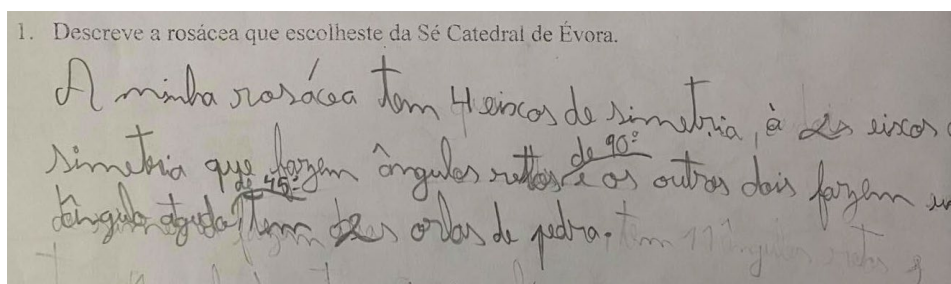 1. Descreve a rosácea que escolheste da Sé Catedral de Évora.
A minha rosácea tem 4 eixos de simetria, à eixos
simetria que fazem ângulos rettos de 90º e os outros dois fazem um
ângulo agudo de 45º Tem orlas de pedra. tem 11